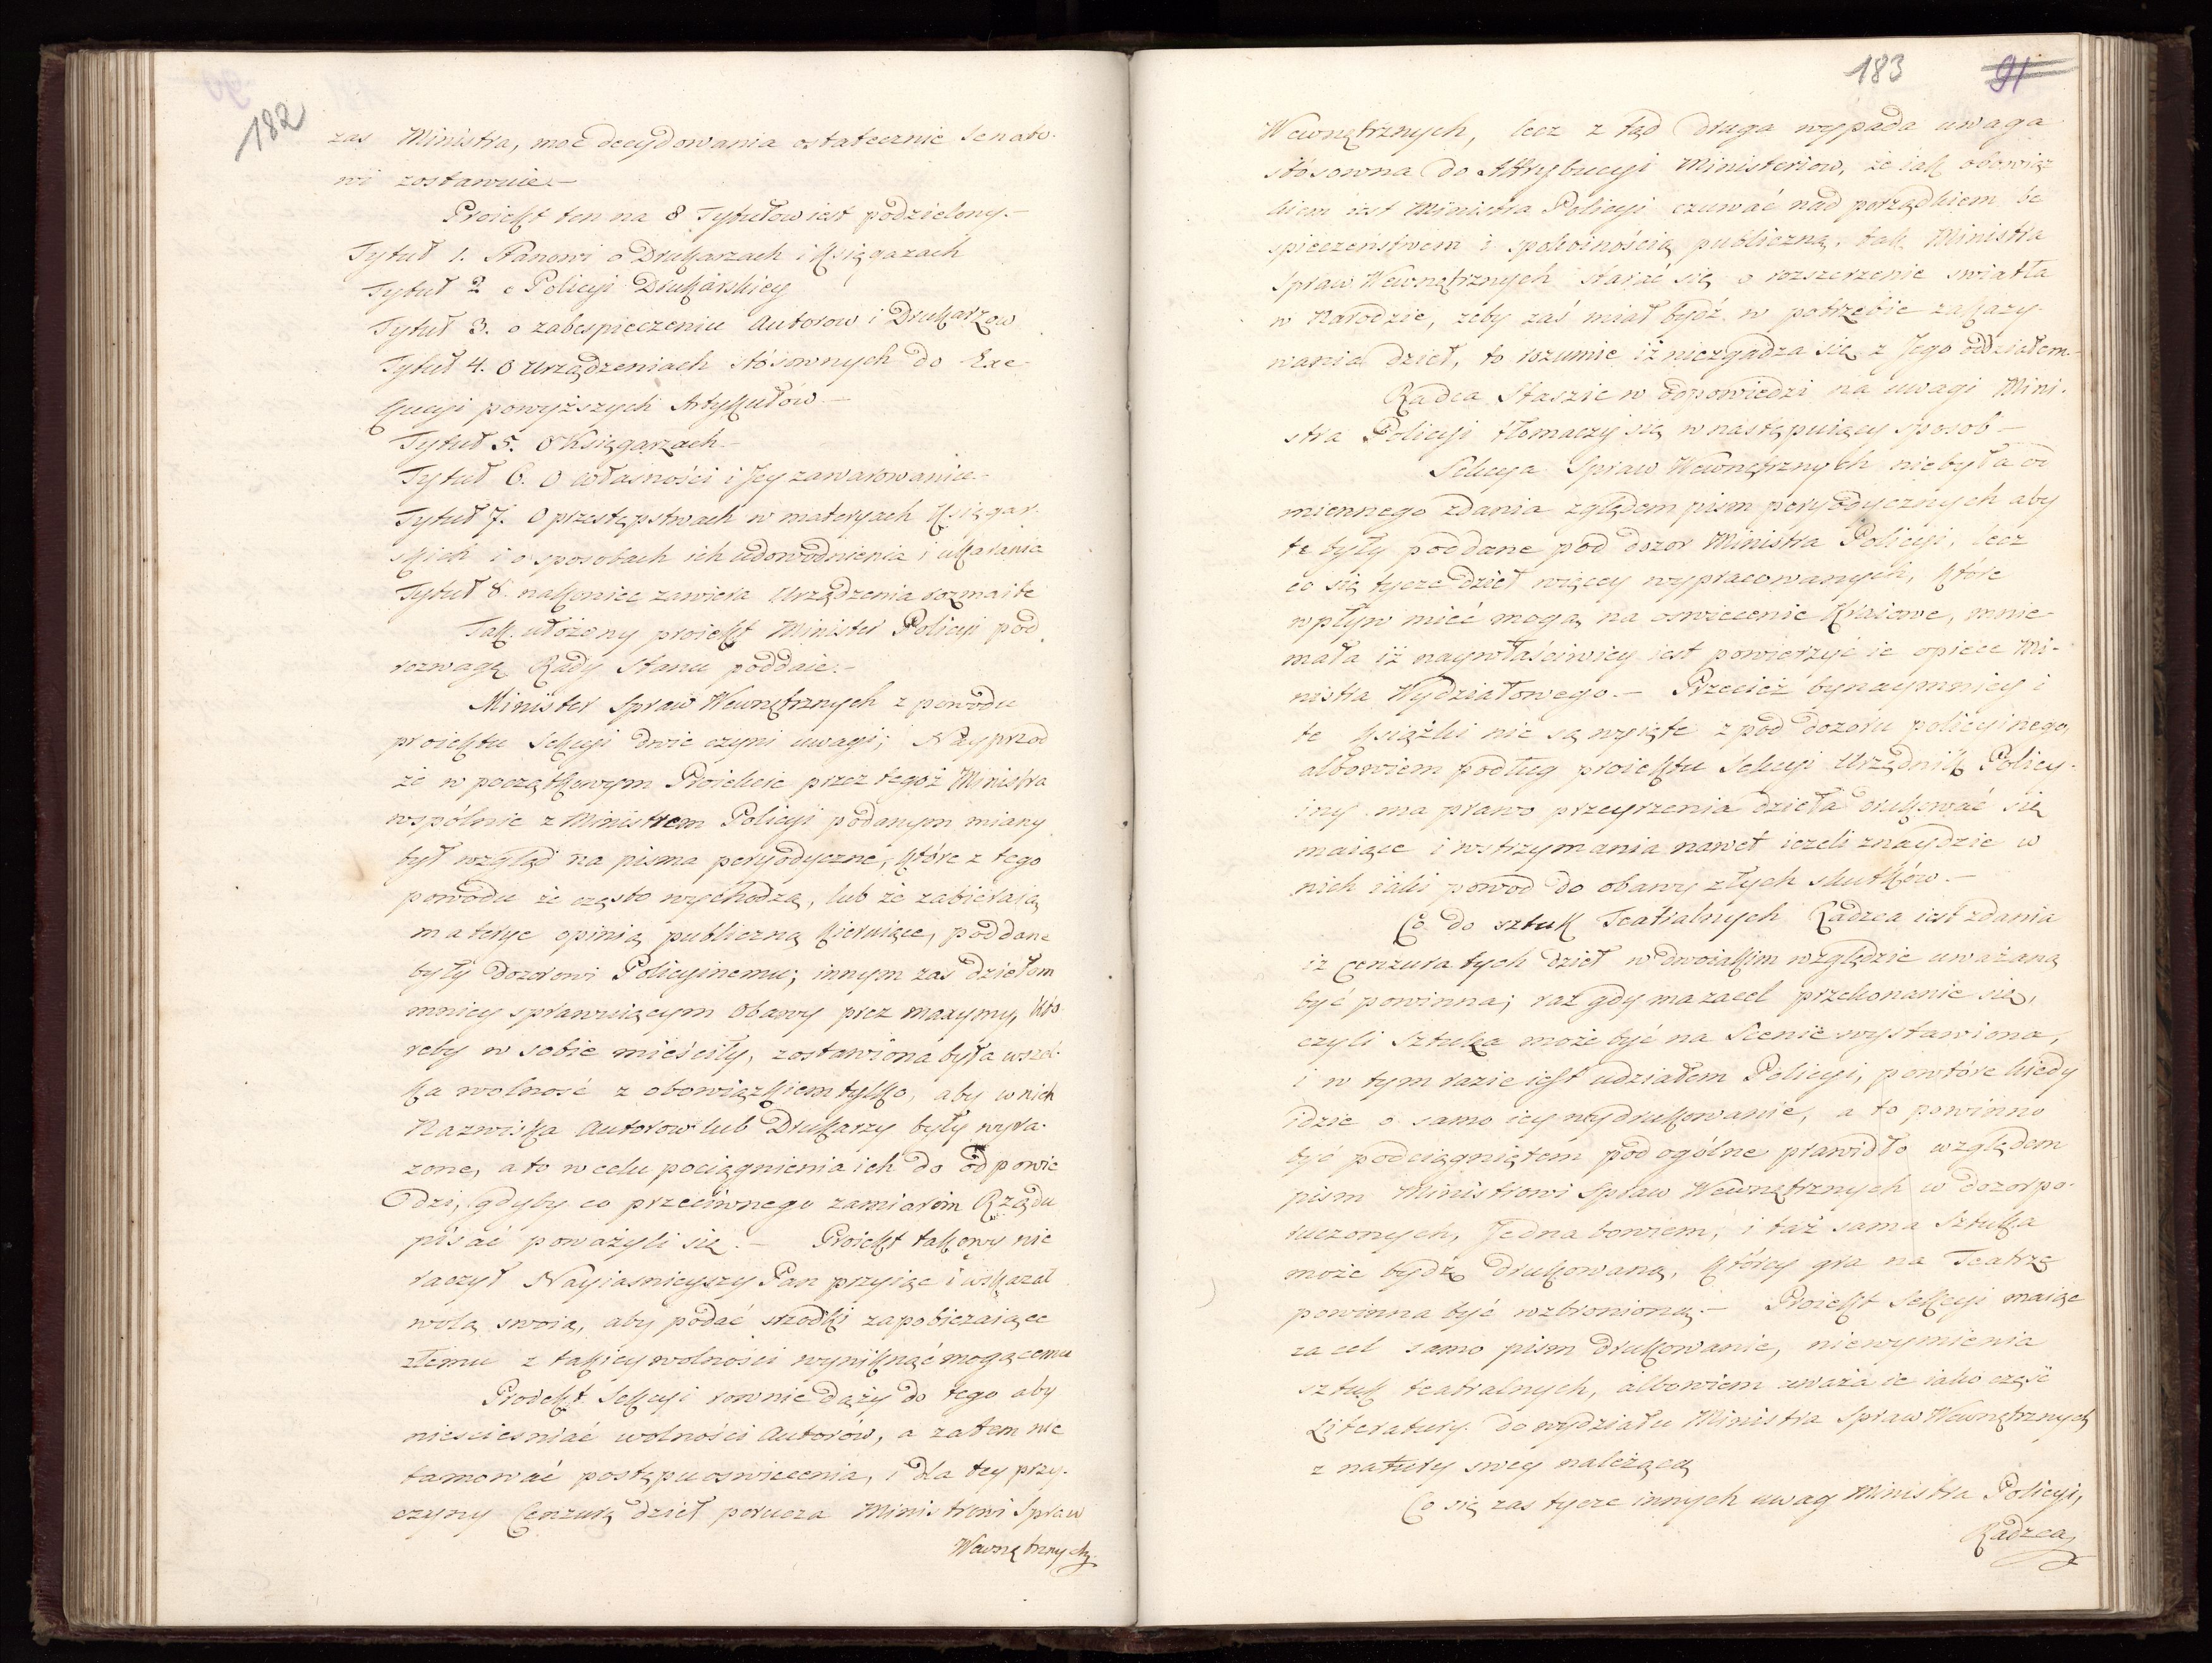 182
zas Ministra, moc decydowania ostatecznie Senato-
wi zostawuie.-
Proiekt ten na 8 Tytułow iest podzielony.-
Tytuł 1. Stanowi o Drukarzach i Księgazach
Tytuł 2 o Policyi Drukarskiey
Tytuł 3. o zabespieczeniu Autorow i Drukarzow
Tytuł 4. O Urządzeniach stósownych do Exe-
kucyi powyższych Artykułów.-
Tytuł 5. O Księgarzach-
Tytuł 6. O własności i Jey zawarowaniu.-
Tytuł 7. O przestępstwach w materyach Księgar-
skich i o sposobach ich udowodnienia i ukarania
Tytuł 8. nakoniec zawiera Urządzenia rozmaite
Tak ułożony proiekt Minister Policyi pod
rozwagę Rady Stanu poddaie.-
Minister Spraw Wewnętrznych z powodu
proiektu Sekcyi dwie czyni uwagi; Nayprzod
że w początkowym Proiekcie przez tegoż Ministra
wspólnie z Ministrem Policyi podanym miany
był wzgląd na pisma peryodyczne, które z tego
powodu że często wychodzą, lub że zabieraią
materye opinią publiczną kieruiące, poddane
były Dozorowi Policyinemu; innym zas dziełom
mniey sprawuiącym Obawy prez maxymy, któ-
reby w sobie mieściły, zostawiona była wszel-
ka wolność z obowiązkiem tylko, aby w nich
Nazwiska Autorow lub Drukarzy były wyra-
zone, a to w celu pociągnienia ich do odpowie
dzi, gdyby co przeciwnego zamiarom Rządu
pisać poważyli się.- Proiekt takowy nie
raczył Nayiasnieyszy Pan przyiąc i wskazał
wolą swoią, aby podać srzodki zapobiezaiące
złemu z takiey wolności wyniknąć mogącemu
Proiekt Sekcyi rownie dąży do tego aby
niesciesniać wolności Autorów, a zatem nie
tamować postępu oswiecenia, i dla tey przy-
czyny Cenzurę dzieł porucza Ministrowi Spraw
Wewnętrznych
183 91
Wewnętrznych, lecz z tąd druga wypada uwaga
stósowna do Attrybucyi Ministeriow, że iak obowiąz
kiem iest Ministra Policyi czuwać nad porządkiem be
spieczeństwem i spokoinością publiczną, tak Ministra
Spraw Wewnętrznych starać się o rozszerzenie swiatła
w Narodzie, żeby zaś miał bydź w potrzebie zakazy-
wania dzieł, to rozumie iż niezgadza się z Jego oddziałem-
Radca Staszic w odpowiedzi na uwagi Mini-
stra Policyi tłomaczy się w następuiący sposob-
Sekcya Spraw Wewnętrznych niebyła od
miennego zdania względem pism peryodycznych aby
te były poddane pod dozor Ministra Policyi, lecz
co się tycze dzieł więcey wypracowanych, które
wpływ mieć mogą na oswiecenie Kraiowe, mnie-
mała iż naywłaściwiey iest powierzyć ie opiece Mi-
nistra Wydziałowego.- Przecież bynaymniey i
te książki nie są wyięte z pod dozoru policyinego,
albowiem podług proiektu Sekcyi Urzędnik Policy-
iny ma prawo przeyrzenia dzieła drukować się
maiące i wstrzymania nawet iezeli znaydzie w
nich iaki powod do obawy złych skutków.-
Co do sztuk Teatralnych Radzca iest zdania
iż Cenzura tych dzieł w dwoiakim względzie uważaną
być powinna; raz gdy ma za cel przekonanie się,
czyli Sztuka może być na Scenie wystawiona,
i w tym razie iest udziałem Policyi, powtóre kiedy
idzie o samo iey wydrukowanie, a to powinno
być podciągniętem pod ogólne prawidło względem
pism Ministrowi Spraw Wewnętrznych w dozor po-
ruczonych, Jedna bowiem, i taż sama Sztuka
może bydź drukowaną, którey gra na Teatrze
powinna być wzbronioną.- Proiekt Sekcyi maiąc
za cel samo pism drukowanie, niewymienia
sztuk teatralnych, albowiem uważa ie iako część
Literatury do wydziału Ministra Spraw Wewnętrznych
z natury swey należącą
Co się zas tycze innych uwag Ministra Policyi,
Radzca